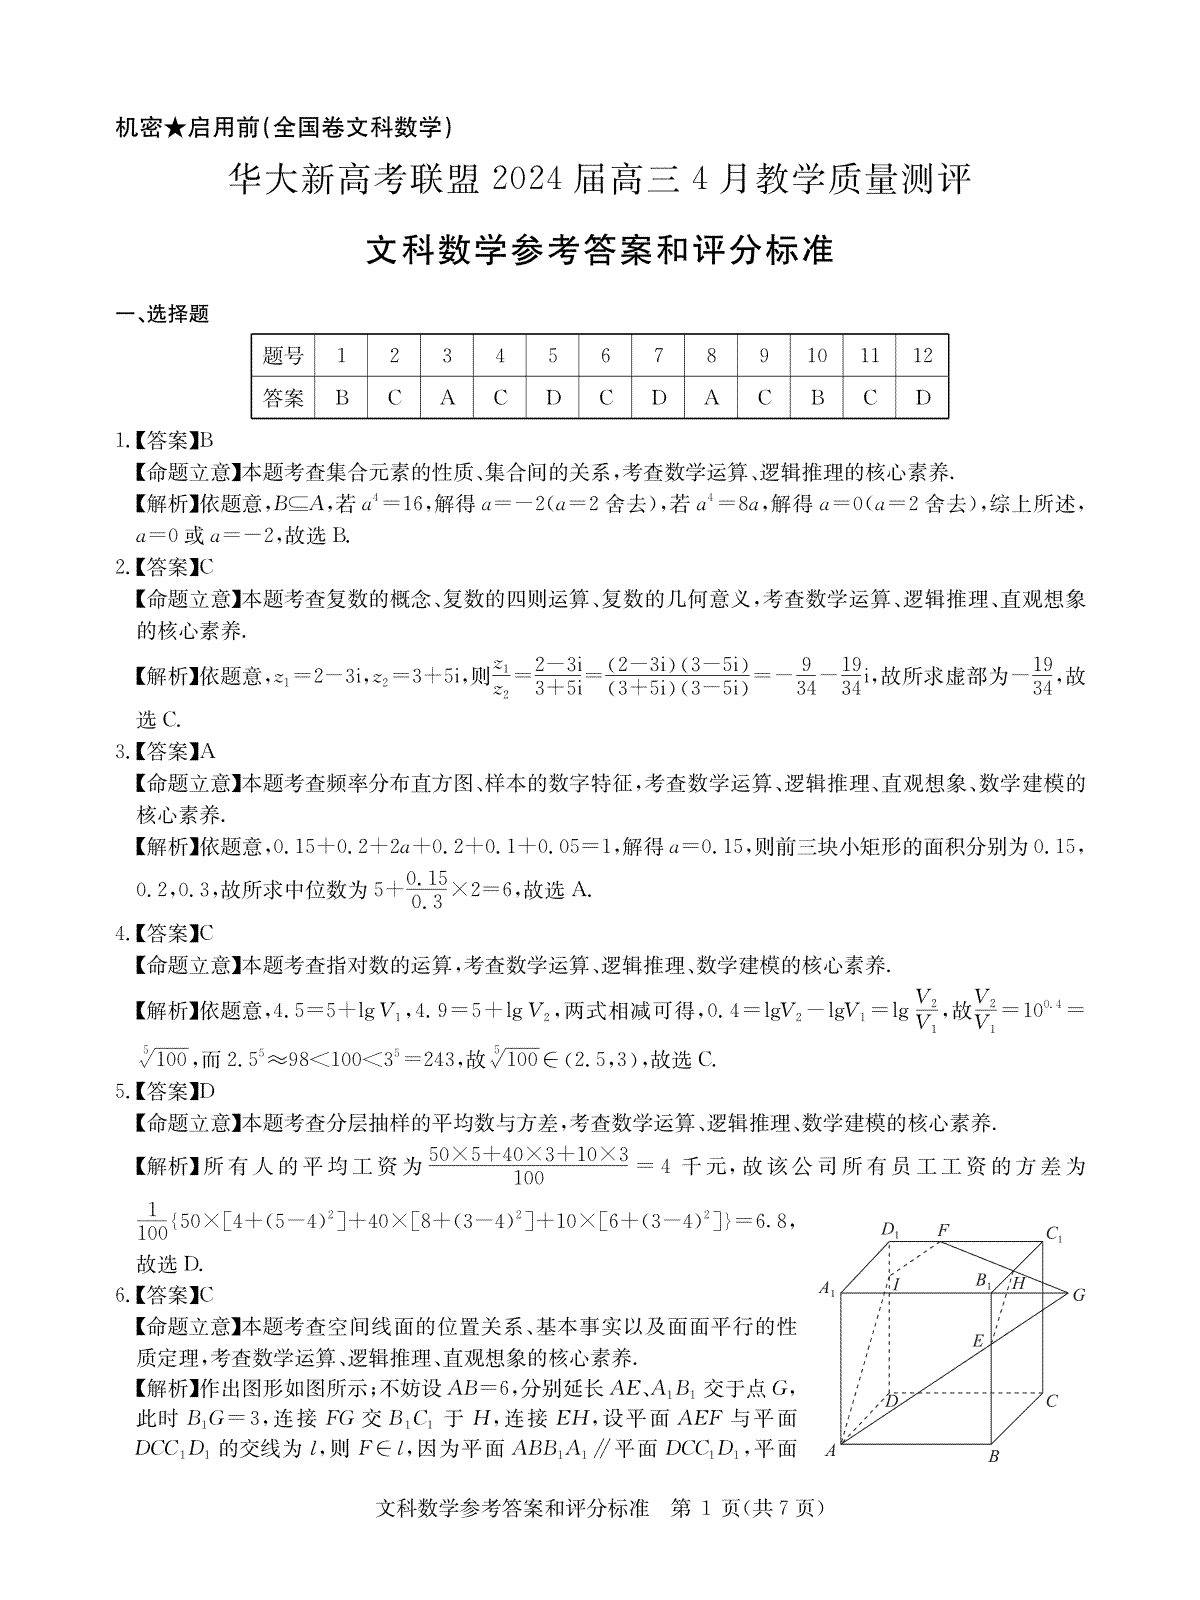 机密★启用前(全国卷文科数学)
华大新高考联盟 2024 届高三 4 月教学质量测评
文科数学参考答案和评分标准
一、选择题
题号 1 2 3 4 5 6 7 8 9 10 11 12
答案 B C A C D C D A C B C D
1.【答案】B
【命题立意】本题考查集合元素的性质、集合间的关系,考查数学运算、逻辑推理的核心素养.
【解析】依题意,B⊆A,若 a⁴=16,解得 a=-2(a=2 舍去),若 a⁴=8a,解得 a=0(a=2 舍去),综上所述,
a=0 或 a=-2,故选 B.
2.【答案】C
【命题立意】本题考查复数的概念、复数的四则运算、复数的几何意义,考查数学运算、逻辑推理、直观想象
的核心素养.
【解析】依题意,z₁=2-3i,z₂=3+5i,则 z₁/z₂=(2-3i)/(3+5i)=(2-3i)(3-5i)/(3+5i)(3-5i)=-9/34-19/34i,故所求虚部为-19/34,故
选 C.
3.【答案】A
【命题立意】本题考查频率分布直方图、样本的数字特征,考查数学运算、逻辑推理、直观想象、数学建模的
核心素养.
【解析】依题意,0.15+0.2+2a+0.2+0.1+0.05=1,解得 a=0.15,则前三块小矩形的面积分别为 0.15,
0.2,0.3,故所求中位数为 5+0.15/0.3×2=6,故选 A.
4.【答案】C
【命题立意】本题考查指对数的运算,考查数学运算、逻辑推理、数学建模的核心素养.
【解析】依题意,4.5=5+lg V₁,4.9=5+lg V₂,两式相减可得,0.4=lgV₂-lgV₁=lg V₂/V₁,故 V₂/V₁=10^0.4=
⁵√100,而 2.5⁵≈98<100<3⁵=243,故⁵√100∈(2.5,3),故选 C.
5.【答案】D
【命题立意】本题考查分层抽样的平均数与方差,考查数学运算、逻辑推理、数学建模的核心素养.
【解析】所有人的平均工资为 (50×5+40×3+10×3)/100 = 4 千元,故该公司所有员工工资的方差为
1/100{50×[4+(5-4)²]+40×[8+(3-4)²]+10×[6+(3-4)²]}=6.8,
故选 D.
6.【答案】C
【命题立意】本题考查空间线面的位置关系、基本事实以及面面平行的性
质定理,考查数学运算、逻辑推理、直观想象的核心素养.
【解析】作出图形如图所示;不妨设 AB=6,分别延长 AE、A₁B₁ 交于点 G,
此时 B₁G=3,连接 FG 交 B₁C₁ 于 H,连接 EH,设平面 AEF 与平面
DCC₁D₁ 的交线为 l,则 F∈l,因为平面 ABB₁A₁∥平面 DCC₁D₁,平面
D₁ F C₁
A₁ I B₁ H G
E
D C
A B
文科数学参考答案和评分标准 第 1 页(共 7 页)